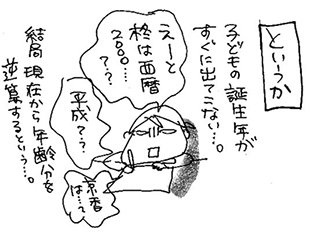 というか
子どもの誕生年が
すぐに出てこない…。
えーと
柊は西暦
2000……
？？
平成？？
京香
は…？
結局 現在から年齢分を
逆算するという…。